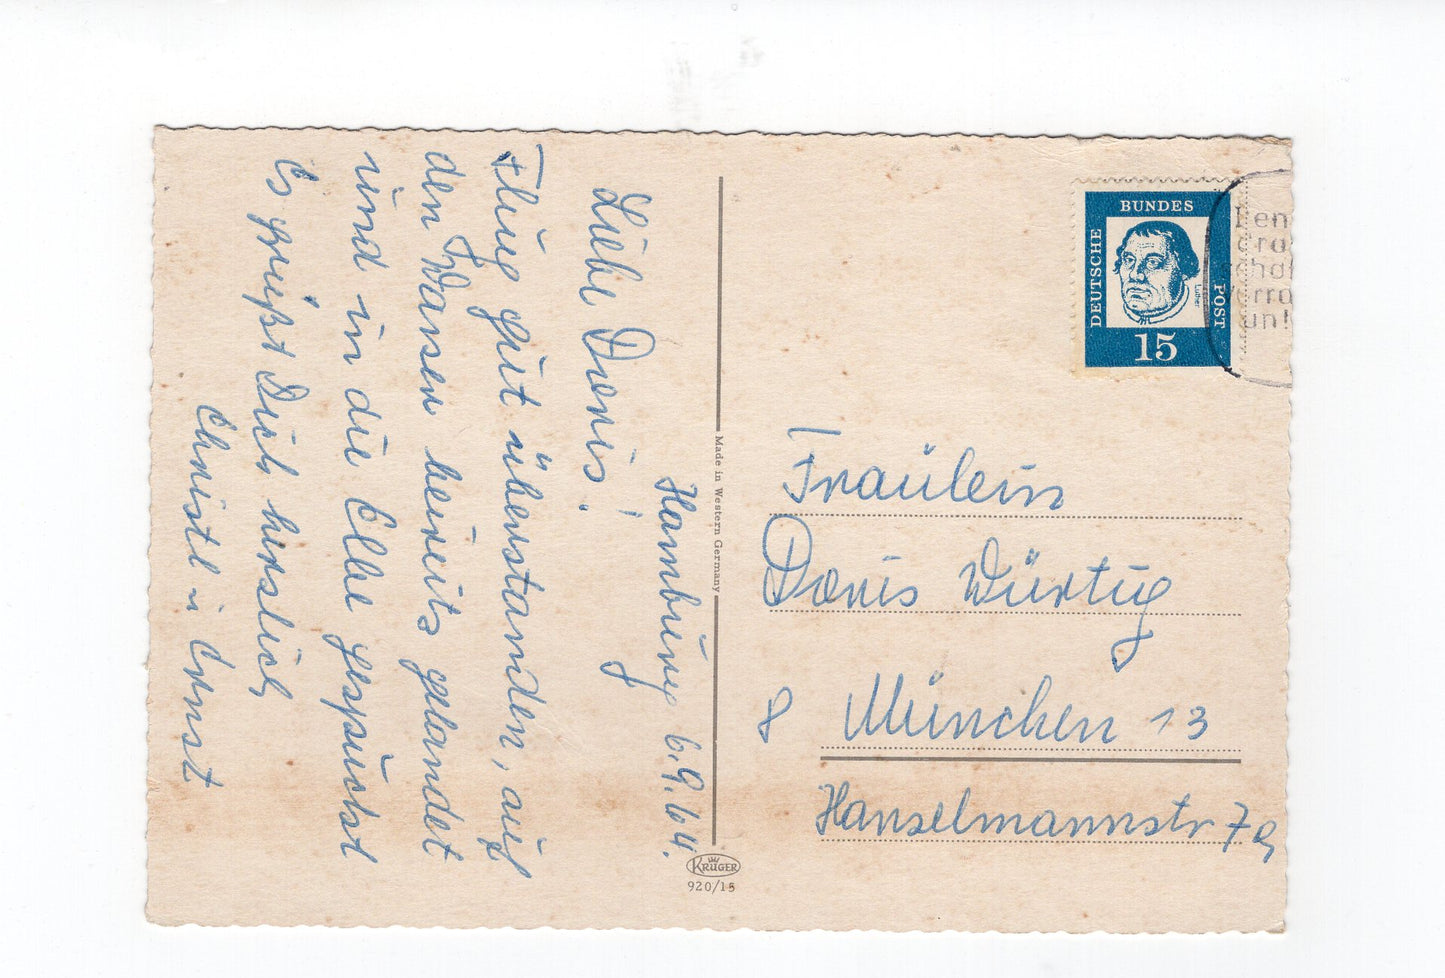 Hamburg 6.9.64.
Liebe Doris!
Flug gut überstanden, auf
den Wasser bereits gelandet
und in die Elbe gespuckt
Es grüßt Dich herzlich
Christl u Ernst
Made in Western Germany
KRÜGER
920/15
DEUTSCHE
BUNDES
POST
Luther
15
Fräulein
Doris Würtig
8 München 13
Hanselmannstr 7a